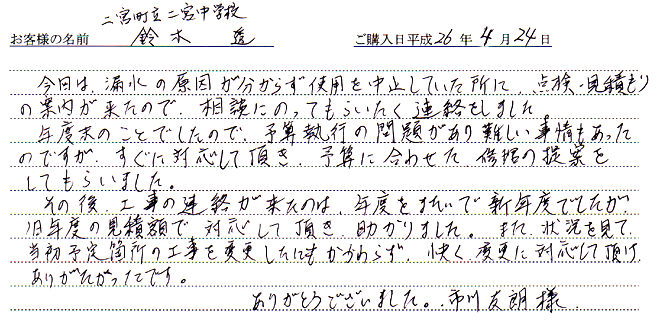 二宮町立二宮中学校
お客様の名前 鈴木 透 ご購入日平成26年4月24日
今日は、漏水の原因が分からず使用を中止していた所に、点検・見積もり
の案内が来たので、相談にのってもらいたく連絡をしました。
年度末のことでしたので、予算執行の問題があり難しい事情もあった
のですが、すぐに対応して頂き、予算に合わせた修理の提案を
してもらいました。
その後、工事の連絡が来たのは、年度をまたいで新年度でしたが
旧年度の見積額で対応して頂き、助かりました。また、状況を見て、
当初予定箇所の工事を変更したにもかかわらず、快く変更に対応して頂け
ありがたかったです。
ありがとうございました。市川友朗様